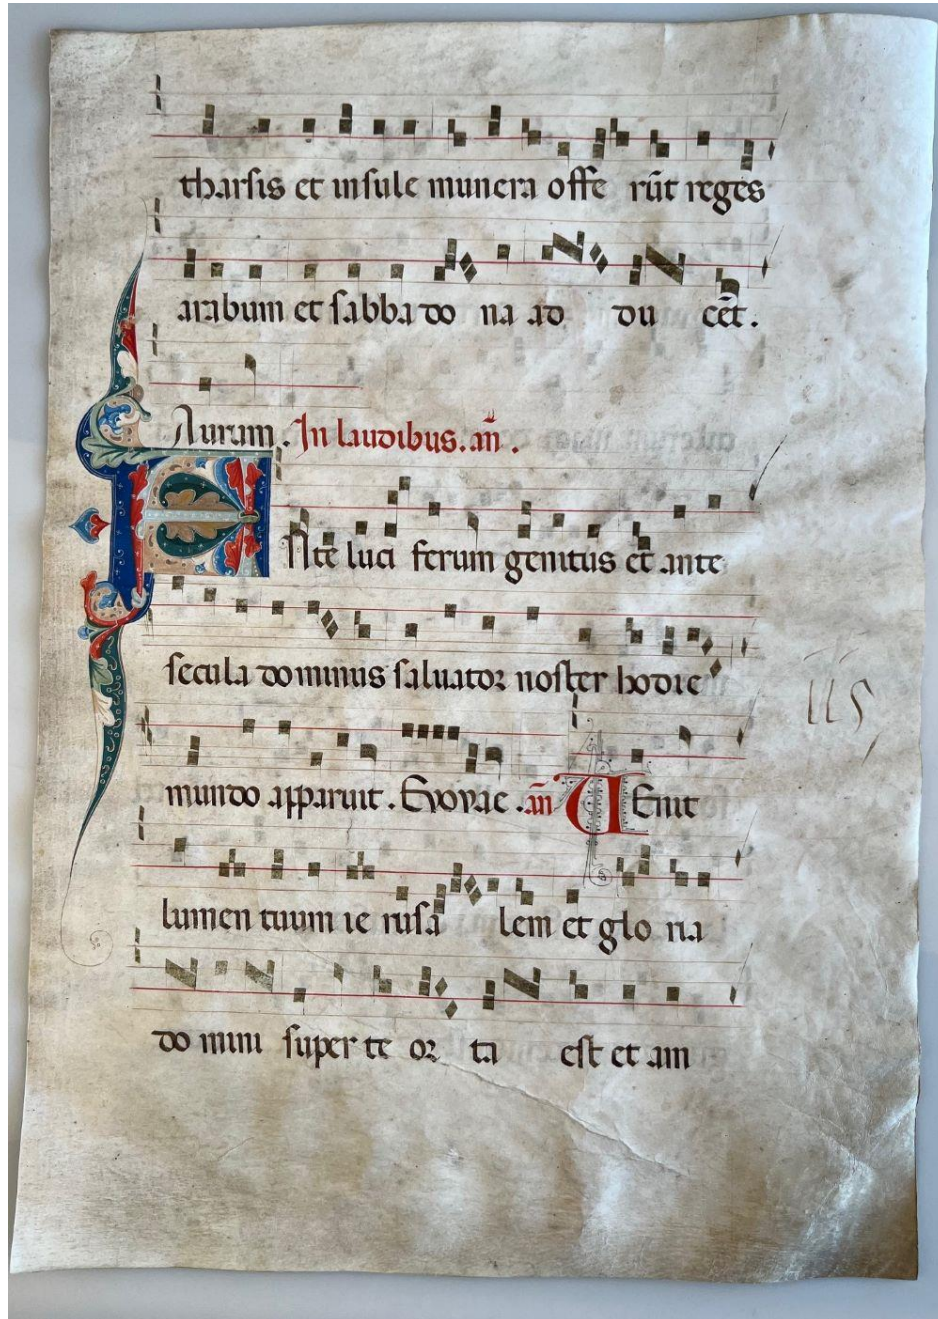 tharsis et insule munera offe rūt reges
arabum et sabba do na ad du cēt.
Aurum. In laudibus. añ.
Ante luci ferum genitus et ante
secula dominus saluator noster hodie
mundo apparuit. Evovae. añ VEnit
lumen tuum ie rusa lem et glo ria
do mini super te or ta est et am